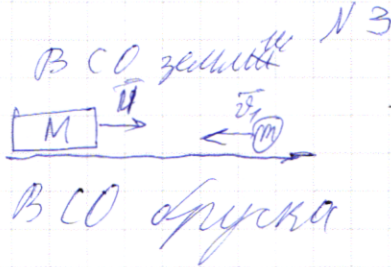 N 3
В СО земли
M ū v̄₁ m
В СО бруска